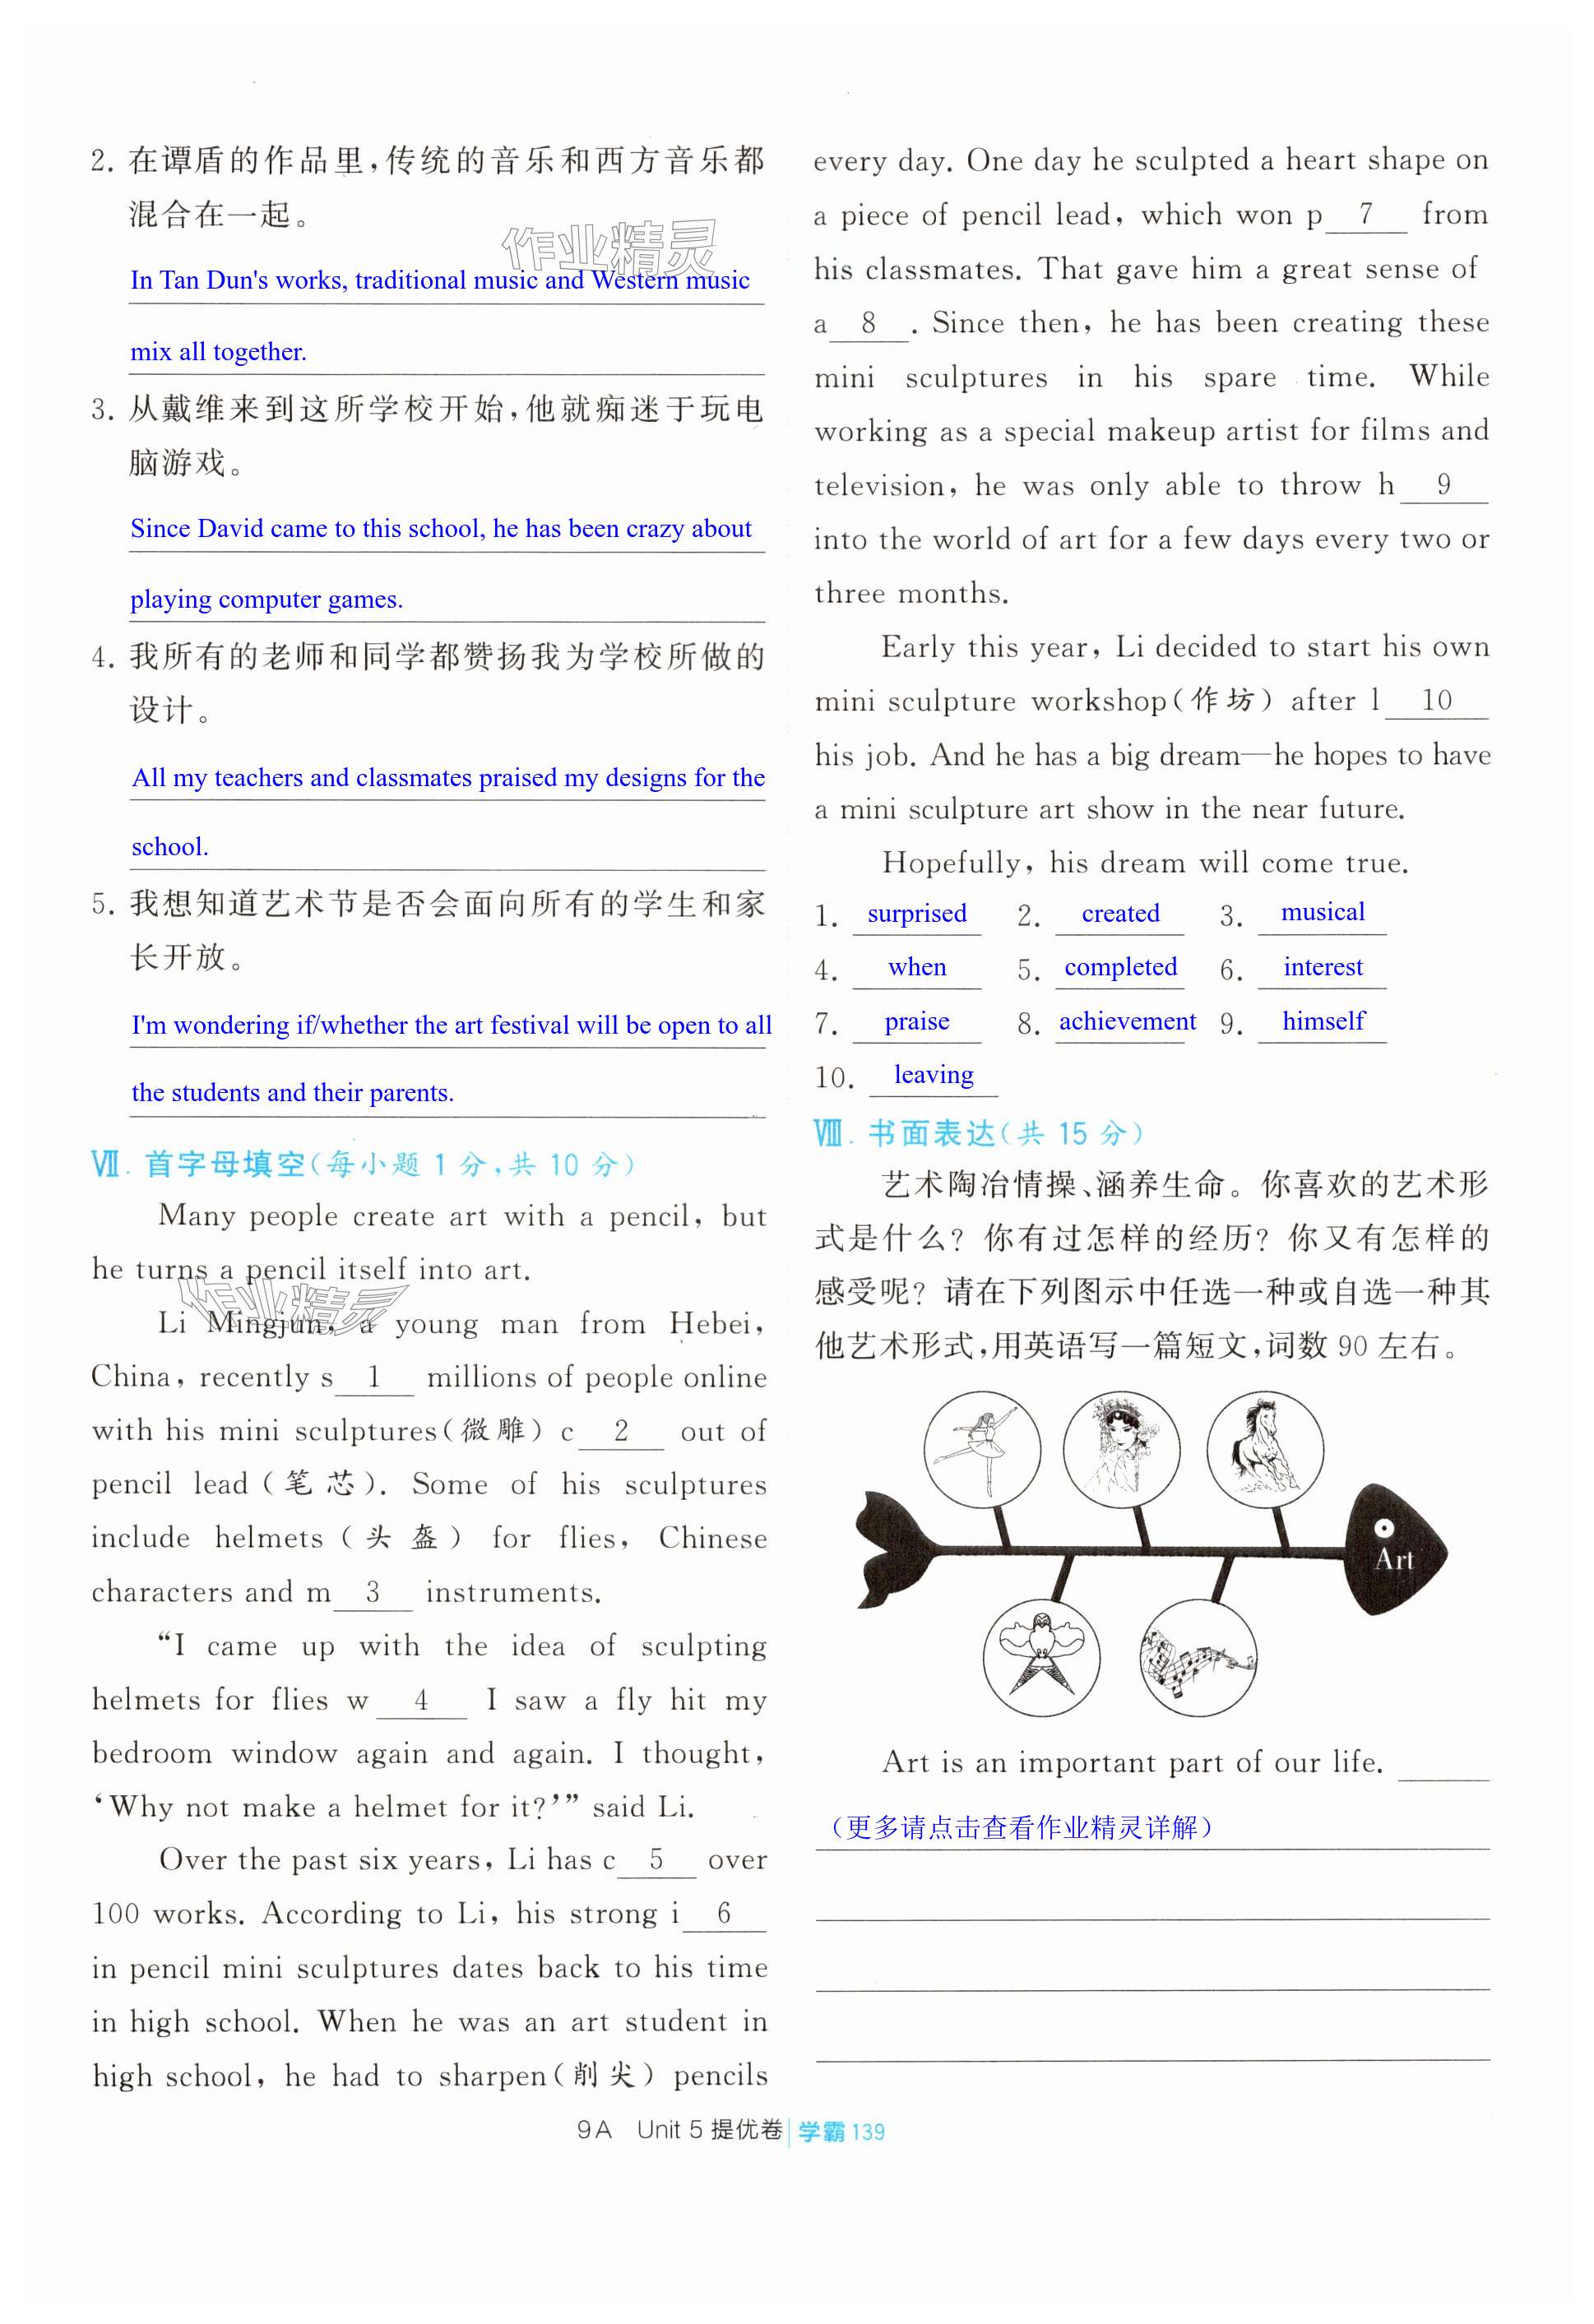 2. 在谭盾的作品里,传统的音乐和西方音乐都
混合在一起。
作业精灵
In Tan Dun's works, traditional music and Western music
mix all together.
3. 从戴维来到这所学校开始,他就痴迷于玩电
脑游戏。
Since David came to this school, he has been crazy about
playing computer games.
4. 我所有的老师和同学都赞扬我为学校所做的
设计。
All my teachers and classmates praised my designs for the
school.
5. 我想知道艺术节是否会面向所有的学生和家
长开放。
I'm wondering if/whether the art festival will be open to all
the students and their parents.
Ⅶ. 首字母填空(每小题 1 分,共 10 分)
Many people create art with a pencil, but
he turns a pencil itself into art.
作业精灵
Li Mingjun, a young man from Hebei,
China, recently s 1 millions of people online
with his mini sculptures(微雕) c 2 out of
pencil lead (笔芯). Some of his sculptures
include helmets (头盔) for flies, Chinese
characters and m 3 instruments.
“I came up with the idea of sculpting
helmets for flies w 4 I saw a fly hit my
bedroom window again and again. I thought,
‘Why not make a helmet for it?’” said Li.
Over the past six years, Li has c 5 over
100 works. According to Li, his strong i 6
in pencil mini sculptures dates back to his time
in high school. When he was an art student in
high school, he had to sharpen(削尖) pencils
every day. One day he sculpted a heart shape on
a piece of pencil lead, which won p 7 from
his classmates. That gave him a great sense of
a 8 . Since then, he has been creating these
mini sculptures in his spare time. While
working as a special makeup artist for films and
television, he was only able to throw h 9
into the world of art for a few days every two or
three months.
Early this year, Li decided to start his own
mini sculpture workshop(作坊) after l 10
his job. And he has a big dream—he hopes to have
a mini sculpture art show in the near future.
Hopefully, his dream will come true.
1. surprised 2. created 3. musical
4. when 5. completed 6. interest
7. praise 8. achievement 9. himself
10. leaving
Ⅷ. 书面表达(共 15 分)
艺术陶冶情操、涵养生命。你喜欢的艺术形
式是什么? 你有过怎样的经历? 你又有怎样的
感受呢? 请在下列图示中任选一种或自选一种其
他艺术形式,用英语写一篇短文,词数 90 左右。
Art
Art is an important part of our life.
（更多请点击查看作业精灵详解）
9A Unit 5 提优卷 学霸 139